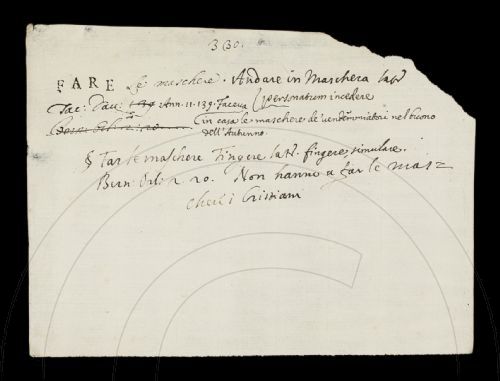 330.
FARE le maschere. Andare in Maschera lat.
personatum incedere
Tac: Dav: 139 Ann. 11. 139. Faceva
in casa le maschere de' vendemmiatori nel buono
dell'Autunno.
§ Far le maschere Fingere lat. fingere, simulare.
Bern: Orl. 2. 20. Non hanno a far le mas=
chere i Cristiani